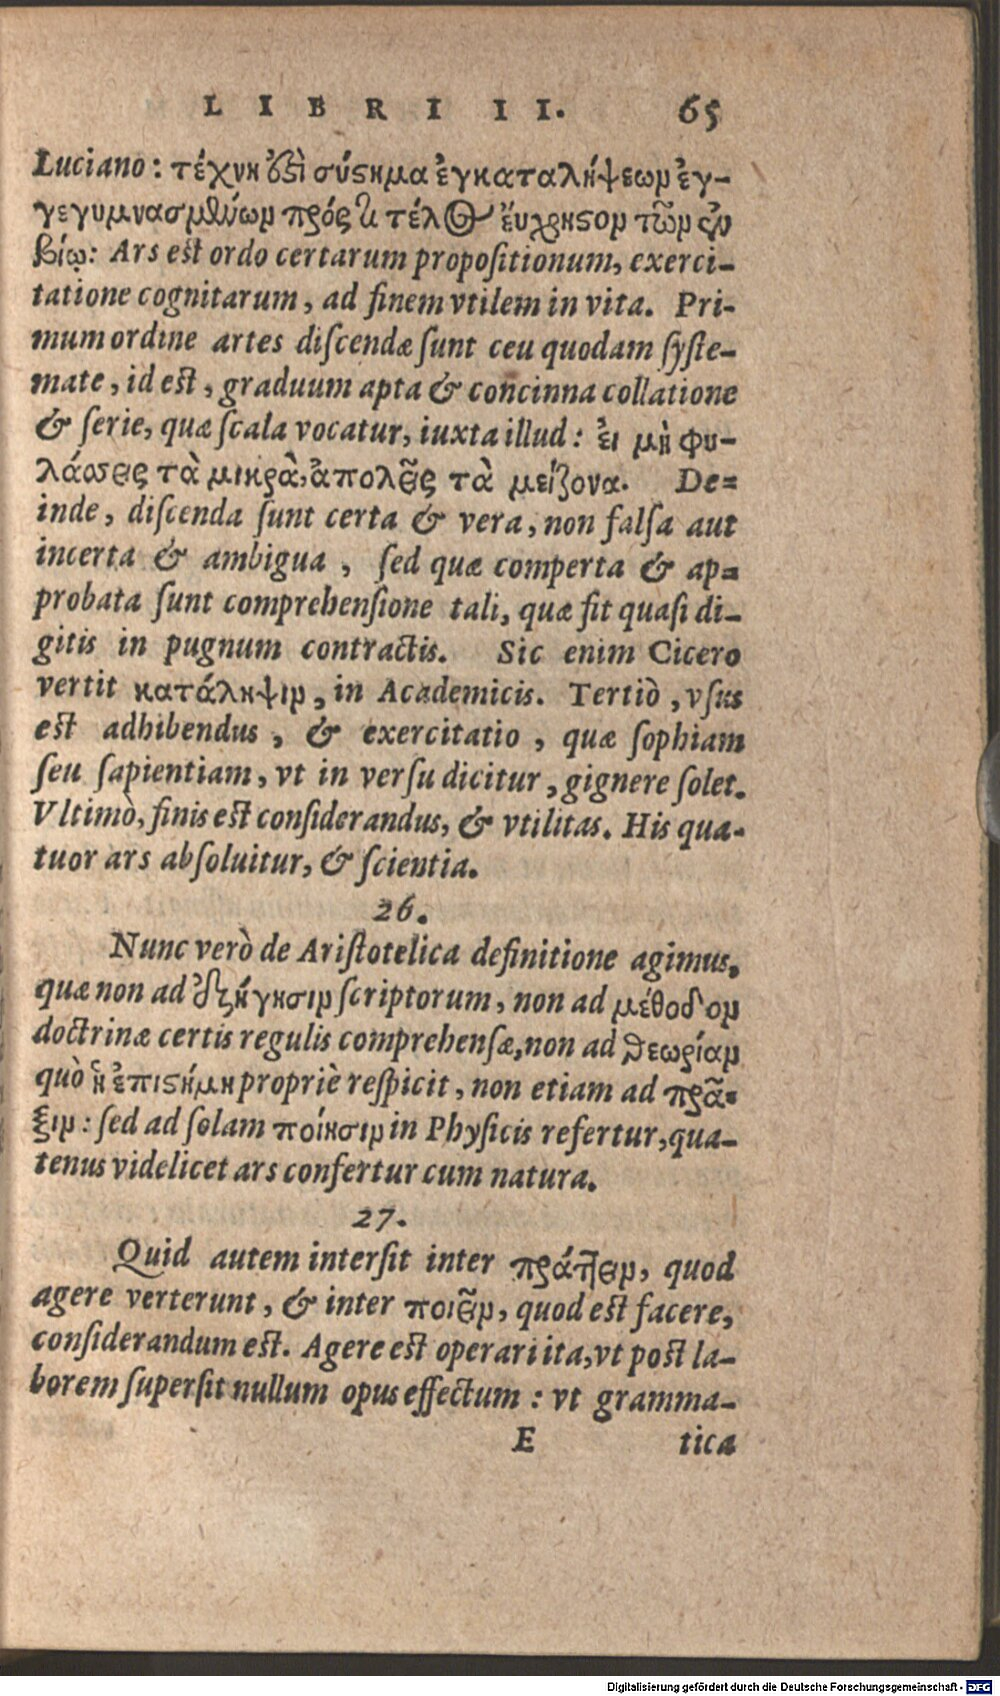 LIBRI II. 65
Luciano: τέχνη ὅτι σύστημα ἐγκαταλήψεων ἐγ-
γεγυμνασμένων πρός τι τέλος εὔχρηστον τῶν ἐν
βίῳ: Ars est ordo certarum propositionum, exerci-
tatione cognitarum, ad finem vtilem in vita. Pri-
mum ordine artes discendæ sunt ceu quodam syste-
mate, id est, graduum apta & concinna collatione
& serie, quæ scala vocatur, iuxta illud: εἰ μὴ φυ-
λάσσεις τὰ μικρὰ, ἀπολεῖς τὰ μείζονα. De=
inde, discenda sunt certa & vera, non falsa aut
incerta & ambigua, sed quæ comperta & ap=
probata sunt comprehensione tali, quæ fit quasi di-
gitis in pugnum contractis. Sic enim Cicero
vertit κατάληψιν, in Academicis. Tertiò, vsus
est adhibendus, & exercitatio, quæ sophiam
seu sapientiam, vt in versu dicitur, gignere solet.
Vltimò, finis est considerandus, & vtilitas. His qua-
tuor ars absoluitur, & scientia.
26.
Nunc verò de Aristotelica definitione agimus,
quæ non ad ἐξήγησιν scriptorum, non ad μέθοδον
doctrinæ certis regulis comprehensæ, non ad θεωρίαν
quò ἡ ἐπιστήμη propriè respicit, non etiam ad πρᾶ=
ξιν: sed ad solam ποίησιν in Physicis refertur, qua-
tenus videlicet ars confertur cum natura.
27.
Quid autem intersit inter πράττειν, quod
agere verterunt, & inter ποιεῖν, quod est facere,
considerandum est. Agere est operari ita, vt post la-
borem supersit nullum opus effectum: vt gramma-
E tica
Digitalisierung gefördert durch die Deutsche Forschungsgemeinschaft - DFG